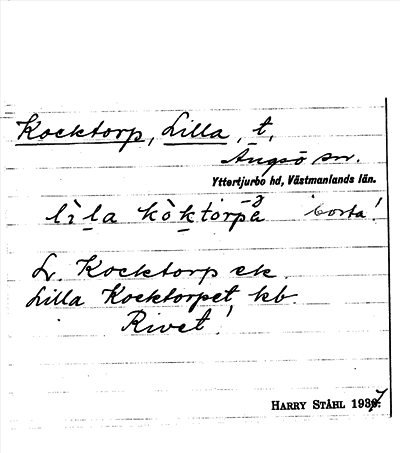 Kocktorp, Lilla, t,
Ängsö sn.
Yttertjurbo hd, Västmanlands län.
lìla kòktorpä borta!
L. Kocktorp ek.
Lilla Kocktorpet kb.
Rivet!
HARRY STÅHL 1937.